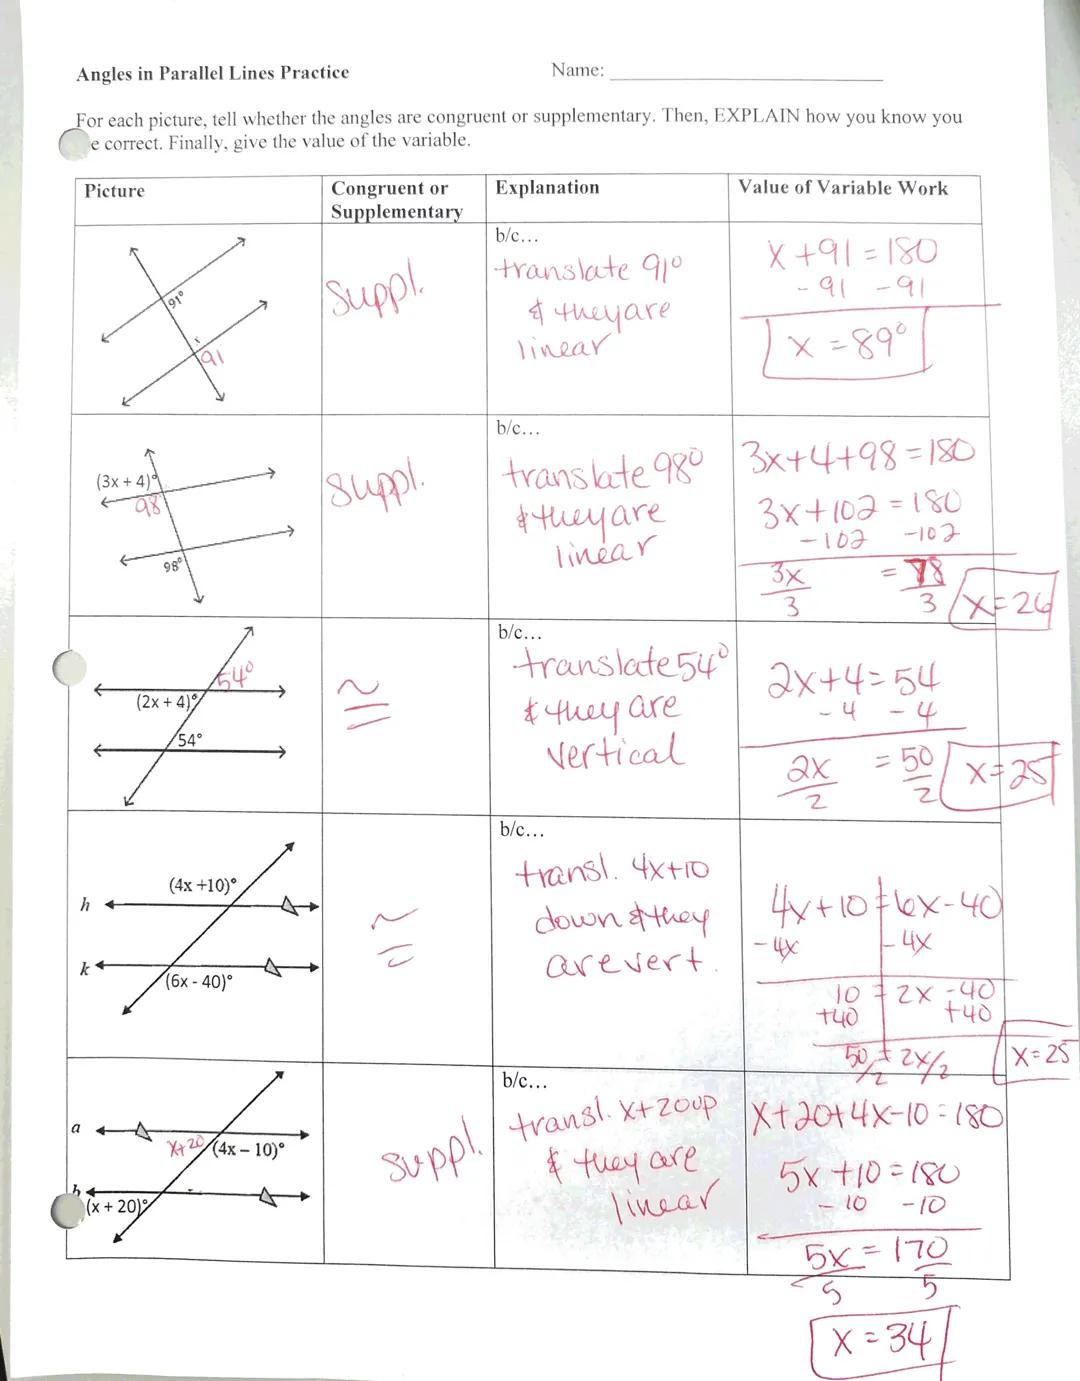 Angles in Parallel Lines Practice
Name:
For each picture, tell whether the angles are congruent or supplementary. Then, EXPLAIN how you know you
e correct. Finally, give the value of the variable.
Picture
Congruent or
Supplementary
Explanation
Value of Variable Work
91°
x
91
Suppl.
b/c...
translate 91°
& they are
linear
x + 91 = 180
- 91 - 91
x = 89°
(3x + 4)°
98
98°
suppl.
b/c...
translate 98°
& they are
linear
3x+4+98 = 180
3x + 102 = 180
- 102 - 102
3x = 78
3 3
x = 26
54°
(2x + 4)°
54°
≅
b/c...
translate 54°
& they are
vertical
2x+4 = 54
- 4 - 4
2x = 50
2 2
x = 25
(4x +10)°
h
k
(6x - 40)°
≅
b/c...
transl. 4x+10
down & they
are vert.
4x + 10 = 6x - 40
- 4x - 4x
10 = 2x - 40
+40 +40
50/2 = 2x/2
x = 25
a
x+20
(4x – 10)°
b
(x + 20)°
suppl.
b/c...
transl. x+20 up
& they are
linear
x+20+4x-10 = 180
5x + 10 = 180
- 10 - 10
5x = 170
5 5
x = 34